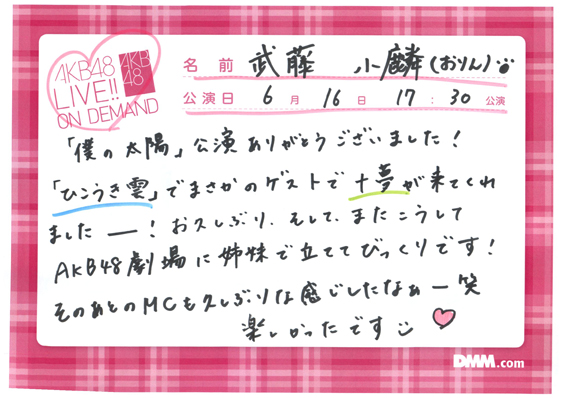 AKB48
LIVE!!
ON DEMAND
AKB
48
名前 武藤 小麟(おりん)
公演日 6月16日 17:30公演
「僕の太陽」公演ありがとうございました!
「ひこうき雲」でまさかのゲストで十夢が来てくれ
ましたー!お久しぶり、そして、またこうして
AKB48劇場に姉妹で立ててびっくりです!
そのあとのMCも久しぶりな感じしたなぁー笑
楽しかったです
DMM.com